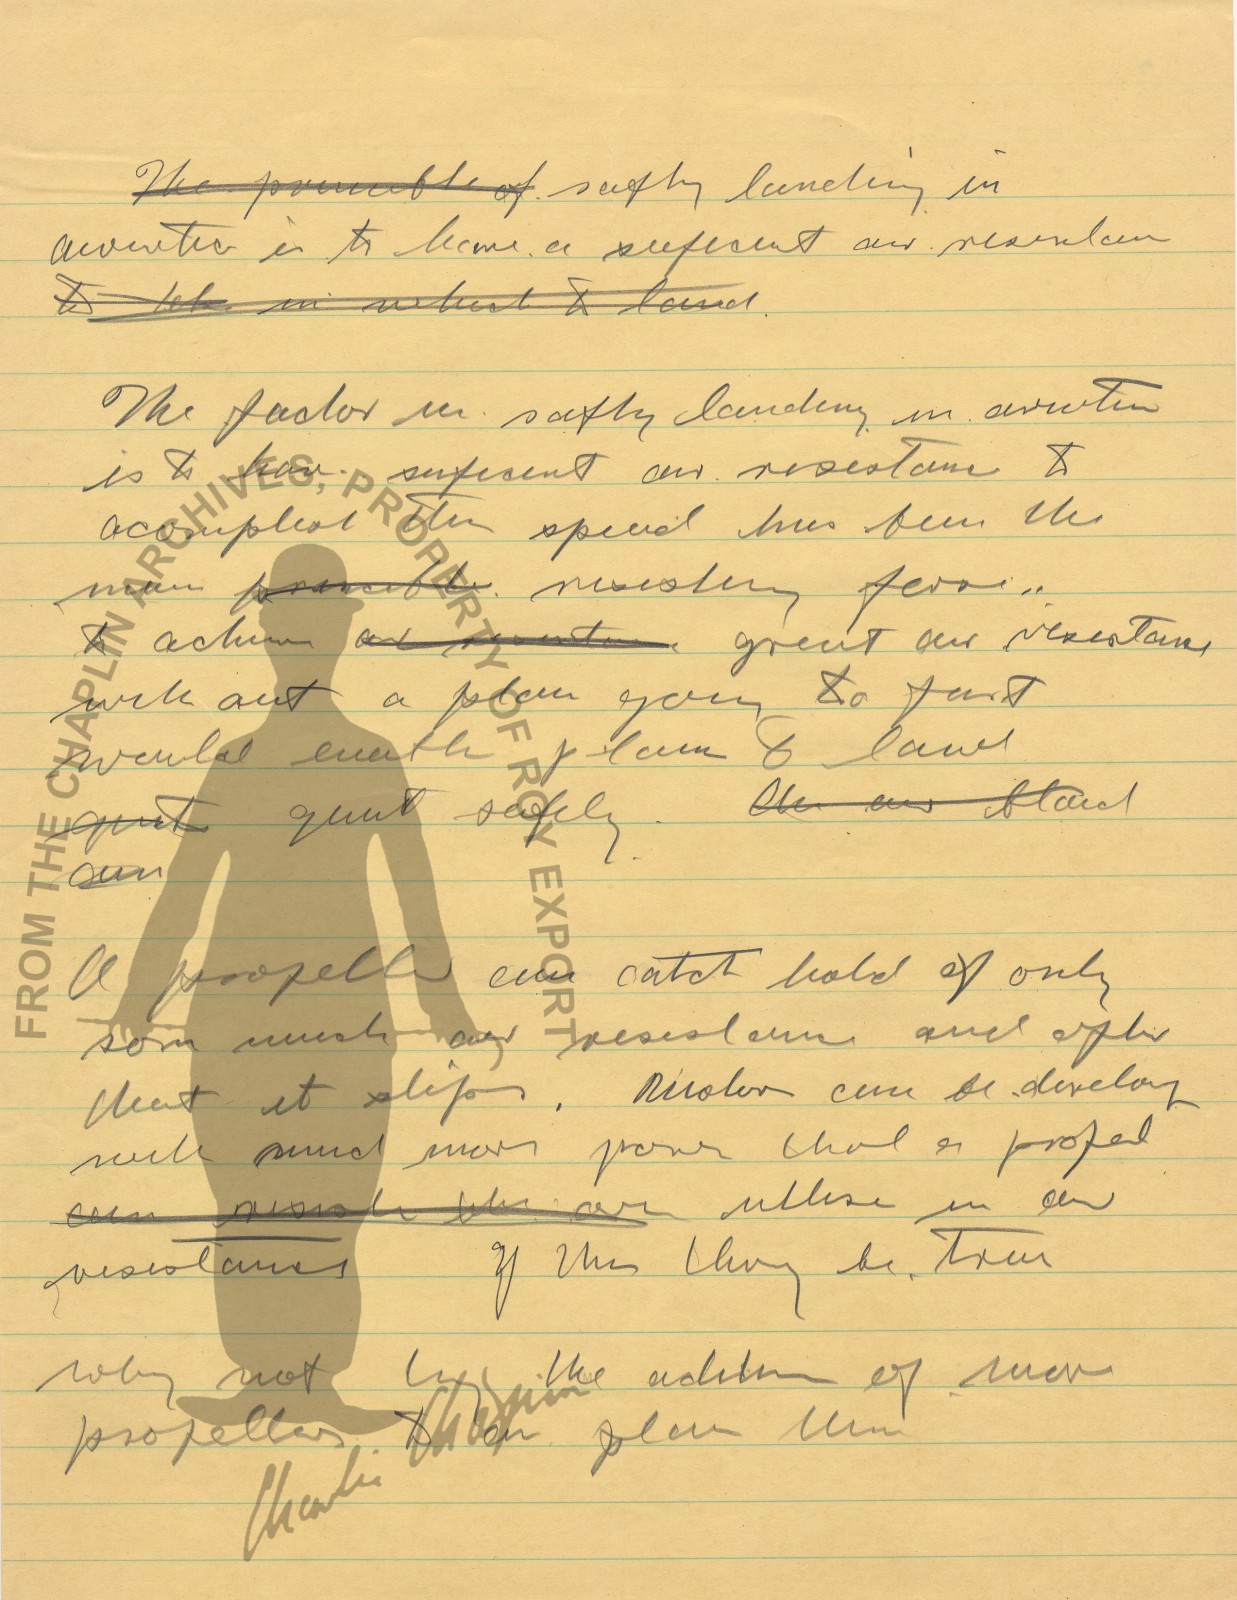 The princable of safty landing in
aviation is to have a suficent air resistance
to the in which to land.
The factor in safty landing in aviation
is to have suficent air resistance to
acomplish this speed has been the
main princable resisting force
to achieve air resistance great air resistance
without a plan going to fast
would enable plane to land
quit quit safely. the air stand
can
A propeller can catch hold of only
som much air resistance and after
that it slips. Motor can be develop
with much more power that a propel
can resist the air utilise in air
resistances If this thing be true
why not by the addition of more
propellers to an plane then
FROM THE CHAPLIN ARCHIVES, PROPERTY OF ROY EXPORT
Charlie Chaplin